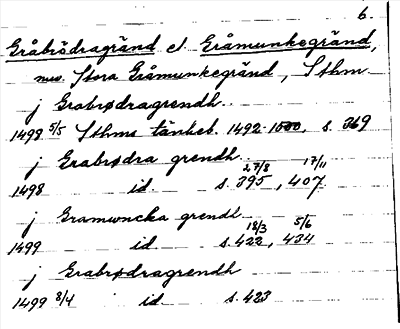 6.
Gråbrödragränd el Gråmunkegränd,
nuv. Stora Gråmunkegränd, Sthm
j Grabrødragrendh
1498 5/5 Sthms tänkeb. 1492-1500, s. 369
j Grabrødra grendh
1498 id. s. 395 27/8, 407 17/11
j Gramwncka grendh
1499 id. s. 422 18/3, 434 5/6
j Grabrødragrendh
1499 8/4 id. s. 423